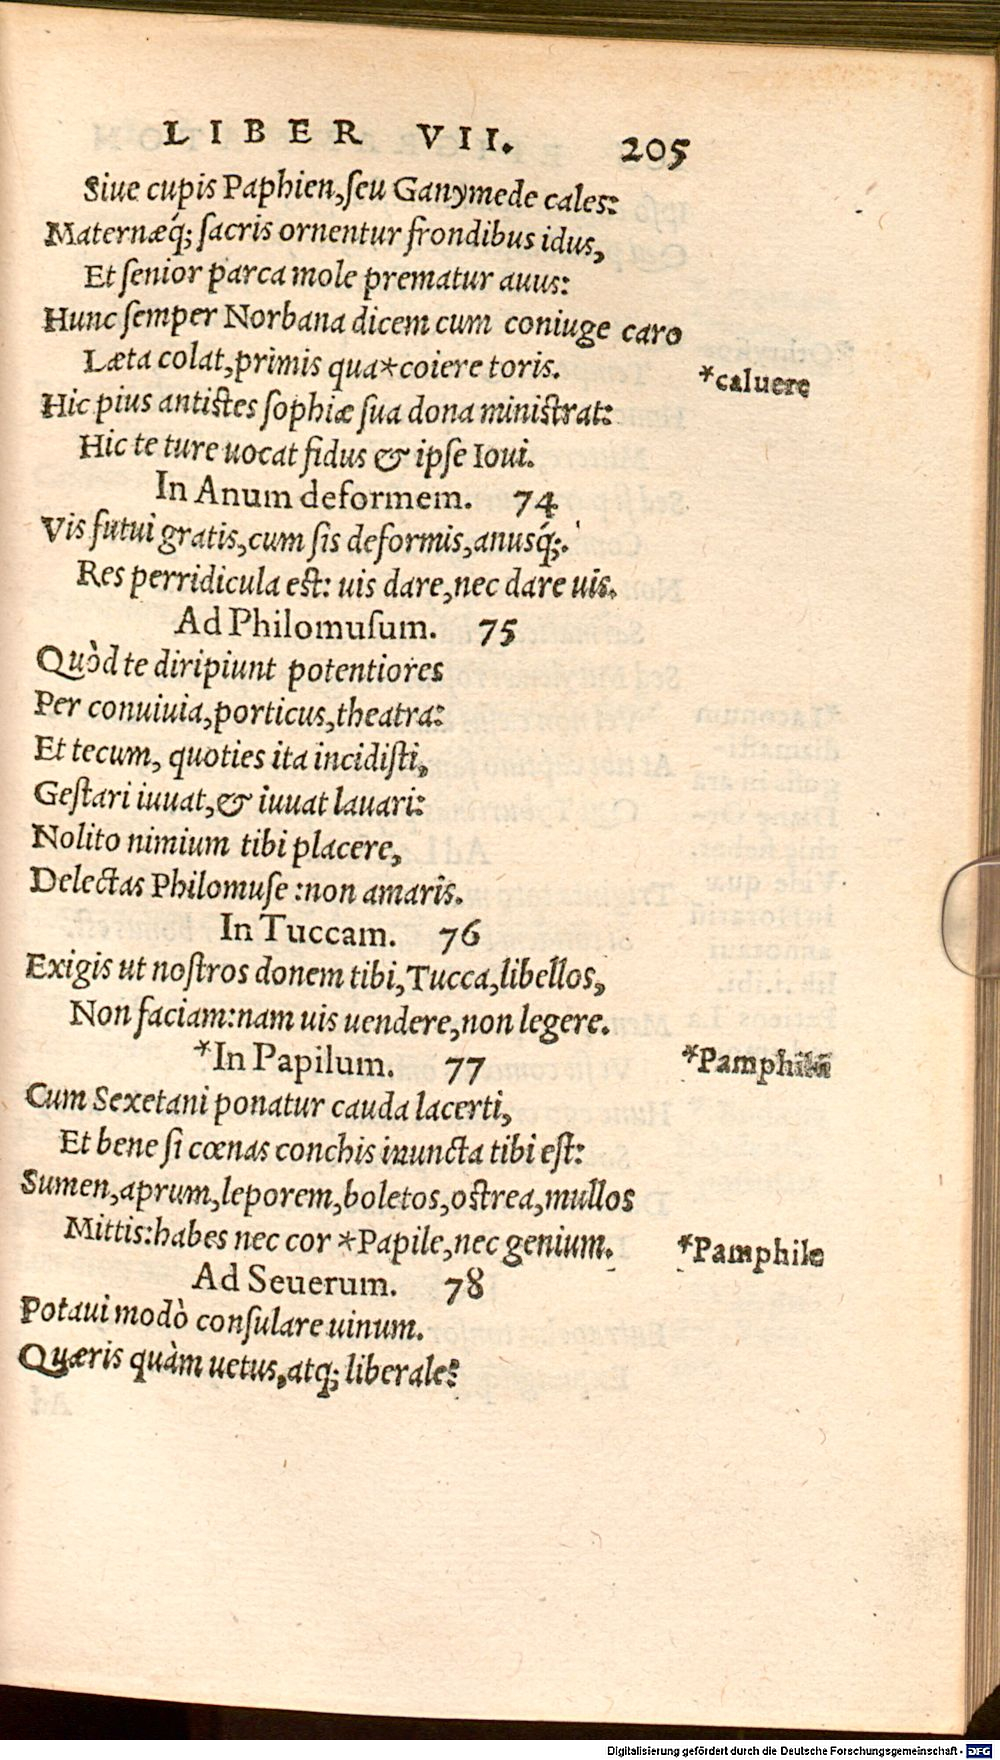 LIBER VII. 205
Siue cupis Paphien,ſeu Ganymede cales:
Maternæq́; ſacris ornentur frondibus idus,
Et ſenior parca mole prematur auus:
Hunc ſemper Norbana dicem cum coniuge caro
Læta colat,primis qua*coiere toris.
*caluere
Hic pius antiſtes ſophiæ ſua dona miniſtrat:
Hic te ture uocat fidus & ipſe Ioui.
In Anum deformem. 74
Vis futui gratis,cum ſis deformis,anusq́;.
Res perridicula eſt: uis dare,nec dare uis.
Ad Philomuſum. 75
Quòd te diripiunt potentiores
Per conuiuia,porticus,theatra:
Et tecum, quoties ita incidiſti,
Geſtari iuuat,& iuuat lauari:
Nolito nimium tibi placere,
Delectas Philomuſe :non amaris.
In Tuccam. 76
Exigis ut noſtros donem tibi,Tucca,libellos,
Non faciam:nam uis uendere,non legere.
*In Papilum. 77
*Pamphilū
Cum Sexetani ponatur cauda lacerti,
Et bene ſi cœnas conchis inuncta tibi eſt:
Sumen,aprum,leporem,boletos,oſtrea,mullos
Mittis:habes nec cor *Papile,nec genium.
*Pamphile
Ad Seuerum. 78
Potaui modò conſulare uinum.
Quæris quàm uetus,atq; liberale?
Digitalisierung gefördert durch die Deutsche Forschungsgemeinschaft - DFG